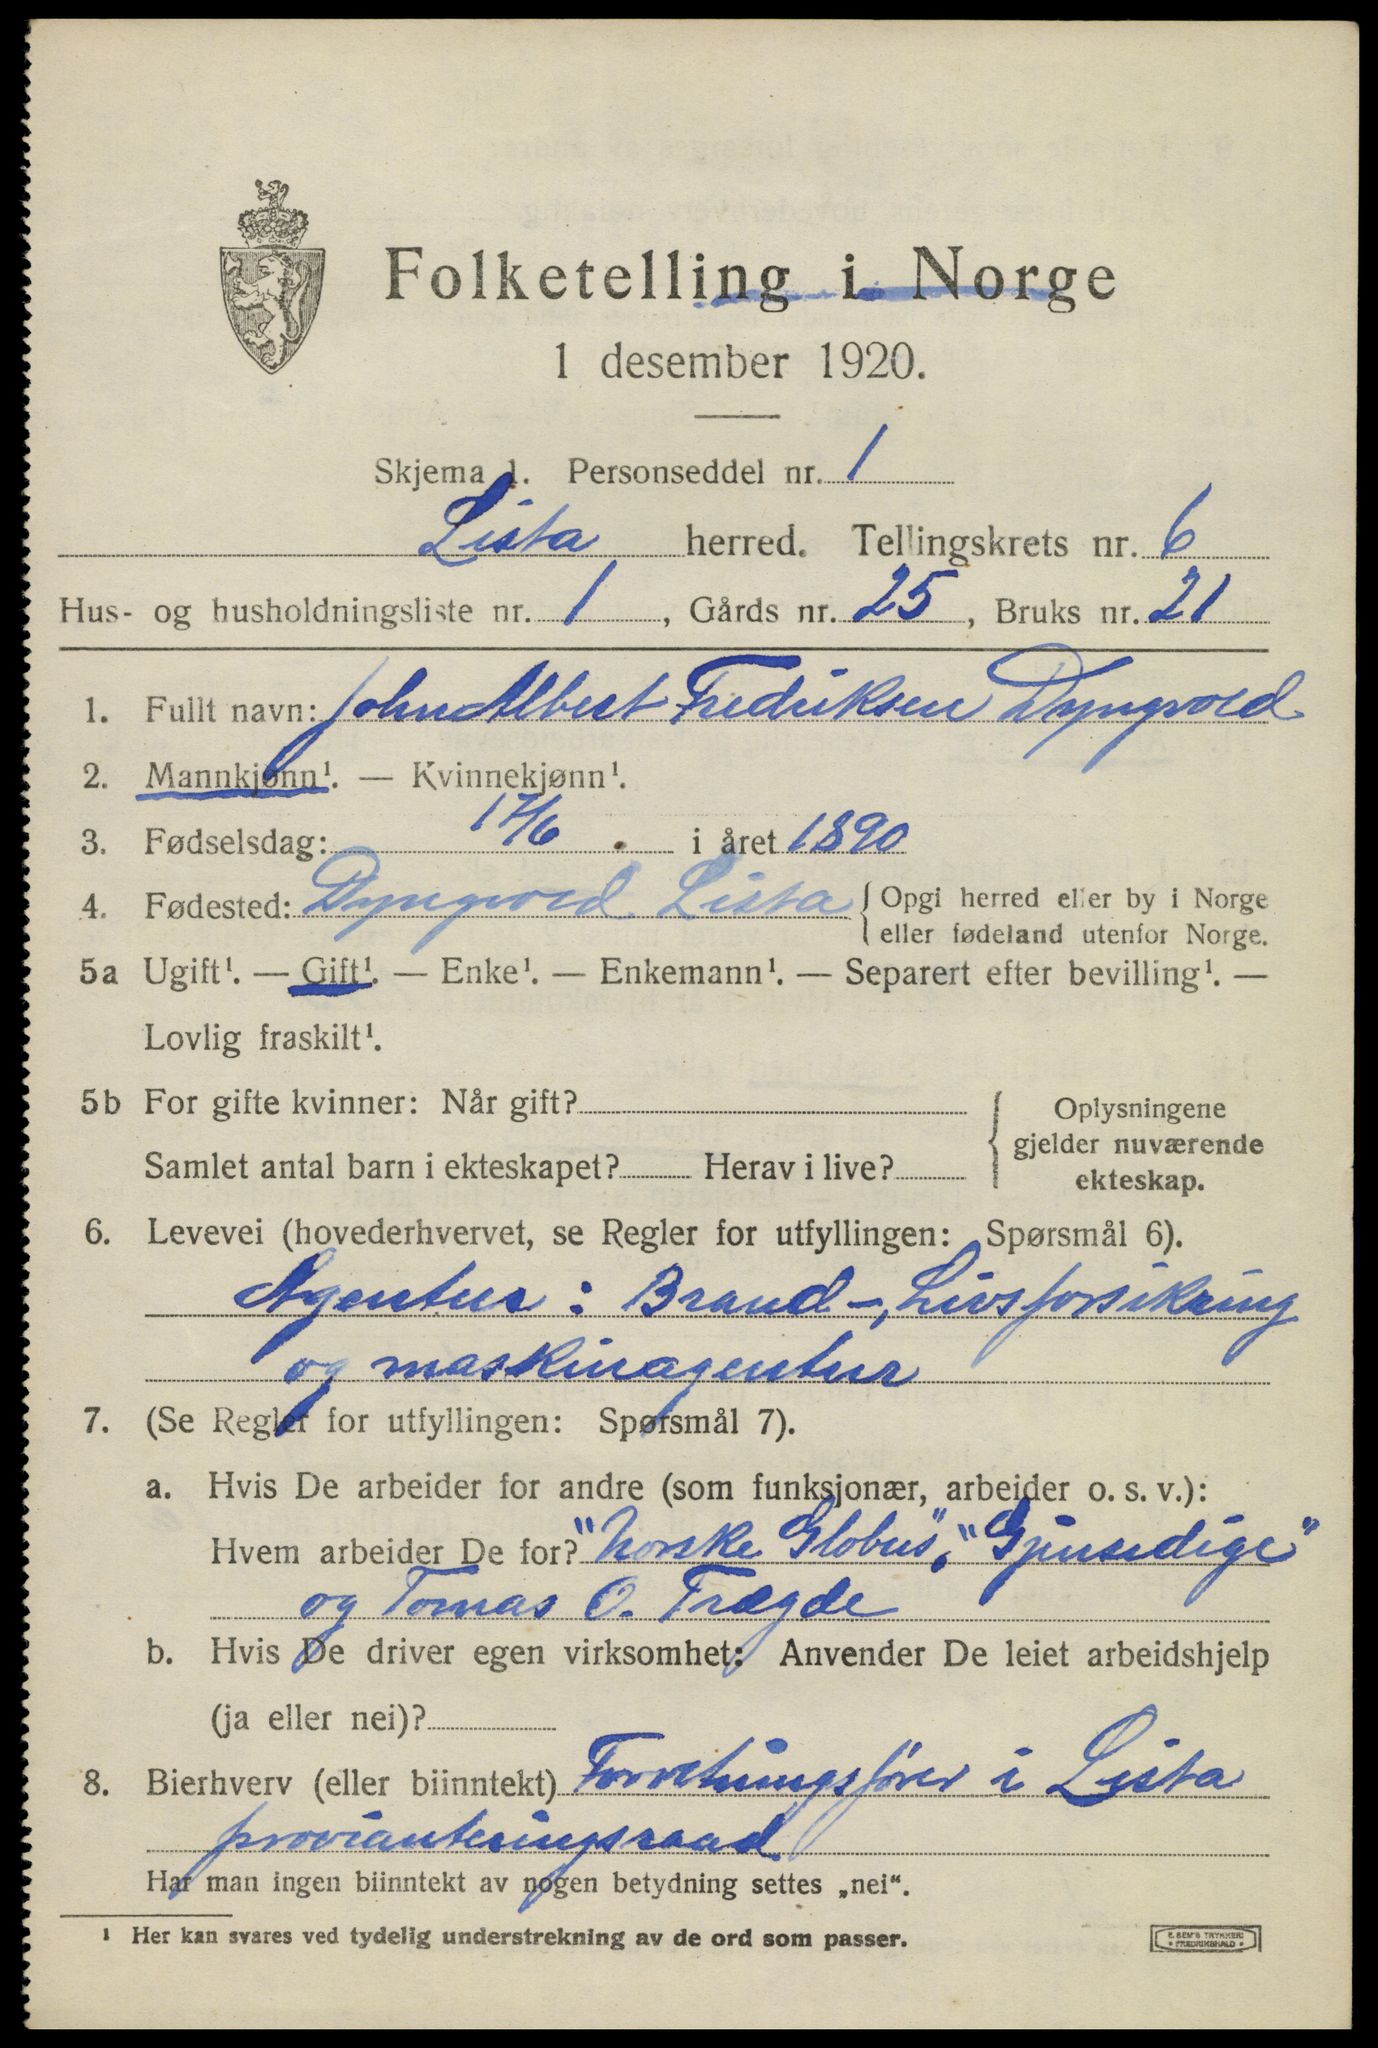 Folketelling i Norge
1 desember 1920.
Skjema 1. Personseddel nr. 1
Lista herred. Tellingskrets nr. 6
Hus- og husholdningsliste nr. 1, Gårds nr. 25, Bruks nr. 21
1. Fullt navn: John Albert Fredriksen Dyngvold
2. Mannkjønn¹. — Kvinnekjønn¹.
3. Fødselsdag: 17/6 i året 1890
4. Fødested: Dyngvold Lista {Opgi herred eller by i Norge
eller fødeland utenfor Norge.
5a Ugift¹. — Gift¹. — Enke¹. — Enkemann¹. — Separert efter bevilling¹. —
Lovlig fraskilt¹.
5b For gifte kvinner: Når gift?
Samlet antal barn i ekteskapet? Herav i live?
Oplysningene
gjelder nuværende
ekteskap.
6. Levevei (hovederhvervet, se Regler for utfyllingen: Spørsmål 6).
Agentur: Brand-, Livsforsikring
og maskinagentur
7. (Se Regler for utfyllingen: Spørsmål 7).
a. Hvis De arbeider for andre (som funksjonær, arbeider o. s. v.):
Hvem arbeider De for? "Norske Globus", "Gjensidige"
og Tomas O. Trægde
b. Hvis De driver egen virksomhet: Anvender De leiet arbeidshjelp
(ja eller nei)?
8. Bierhverv (eller biinntekt) Forretningsfører i Lista
provianteringsraad.
Har man ingen biinntekt av nogen betydning settes „nei“.
¹ Her kan svares ved tydelig understrekning av de ord som passer.
E. SEM'S TRYKKERI
FREDRIKSHALD